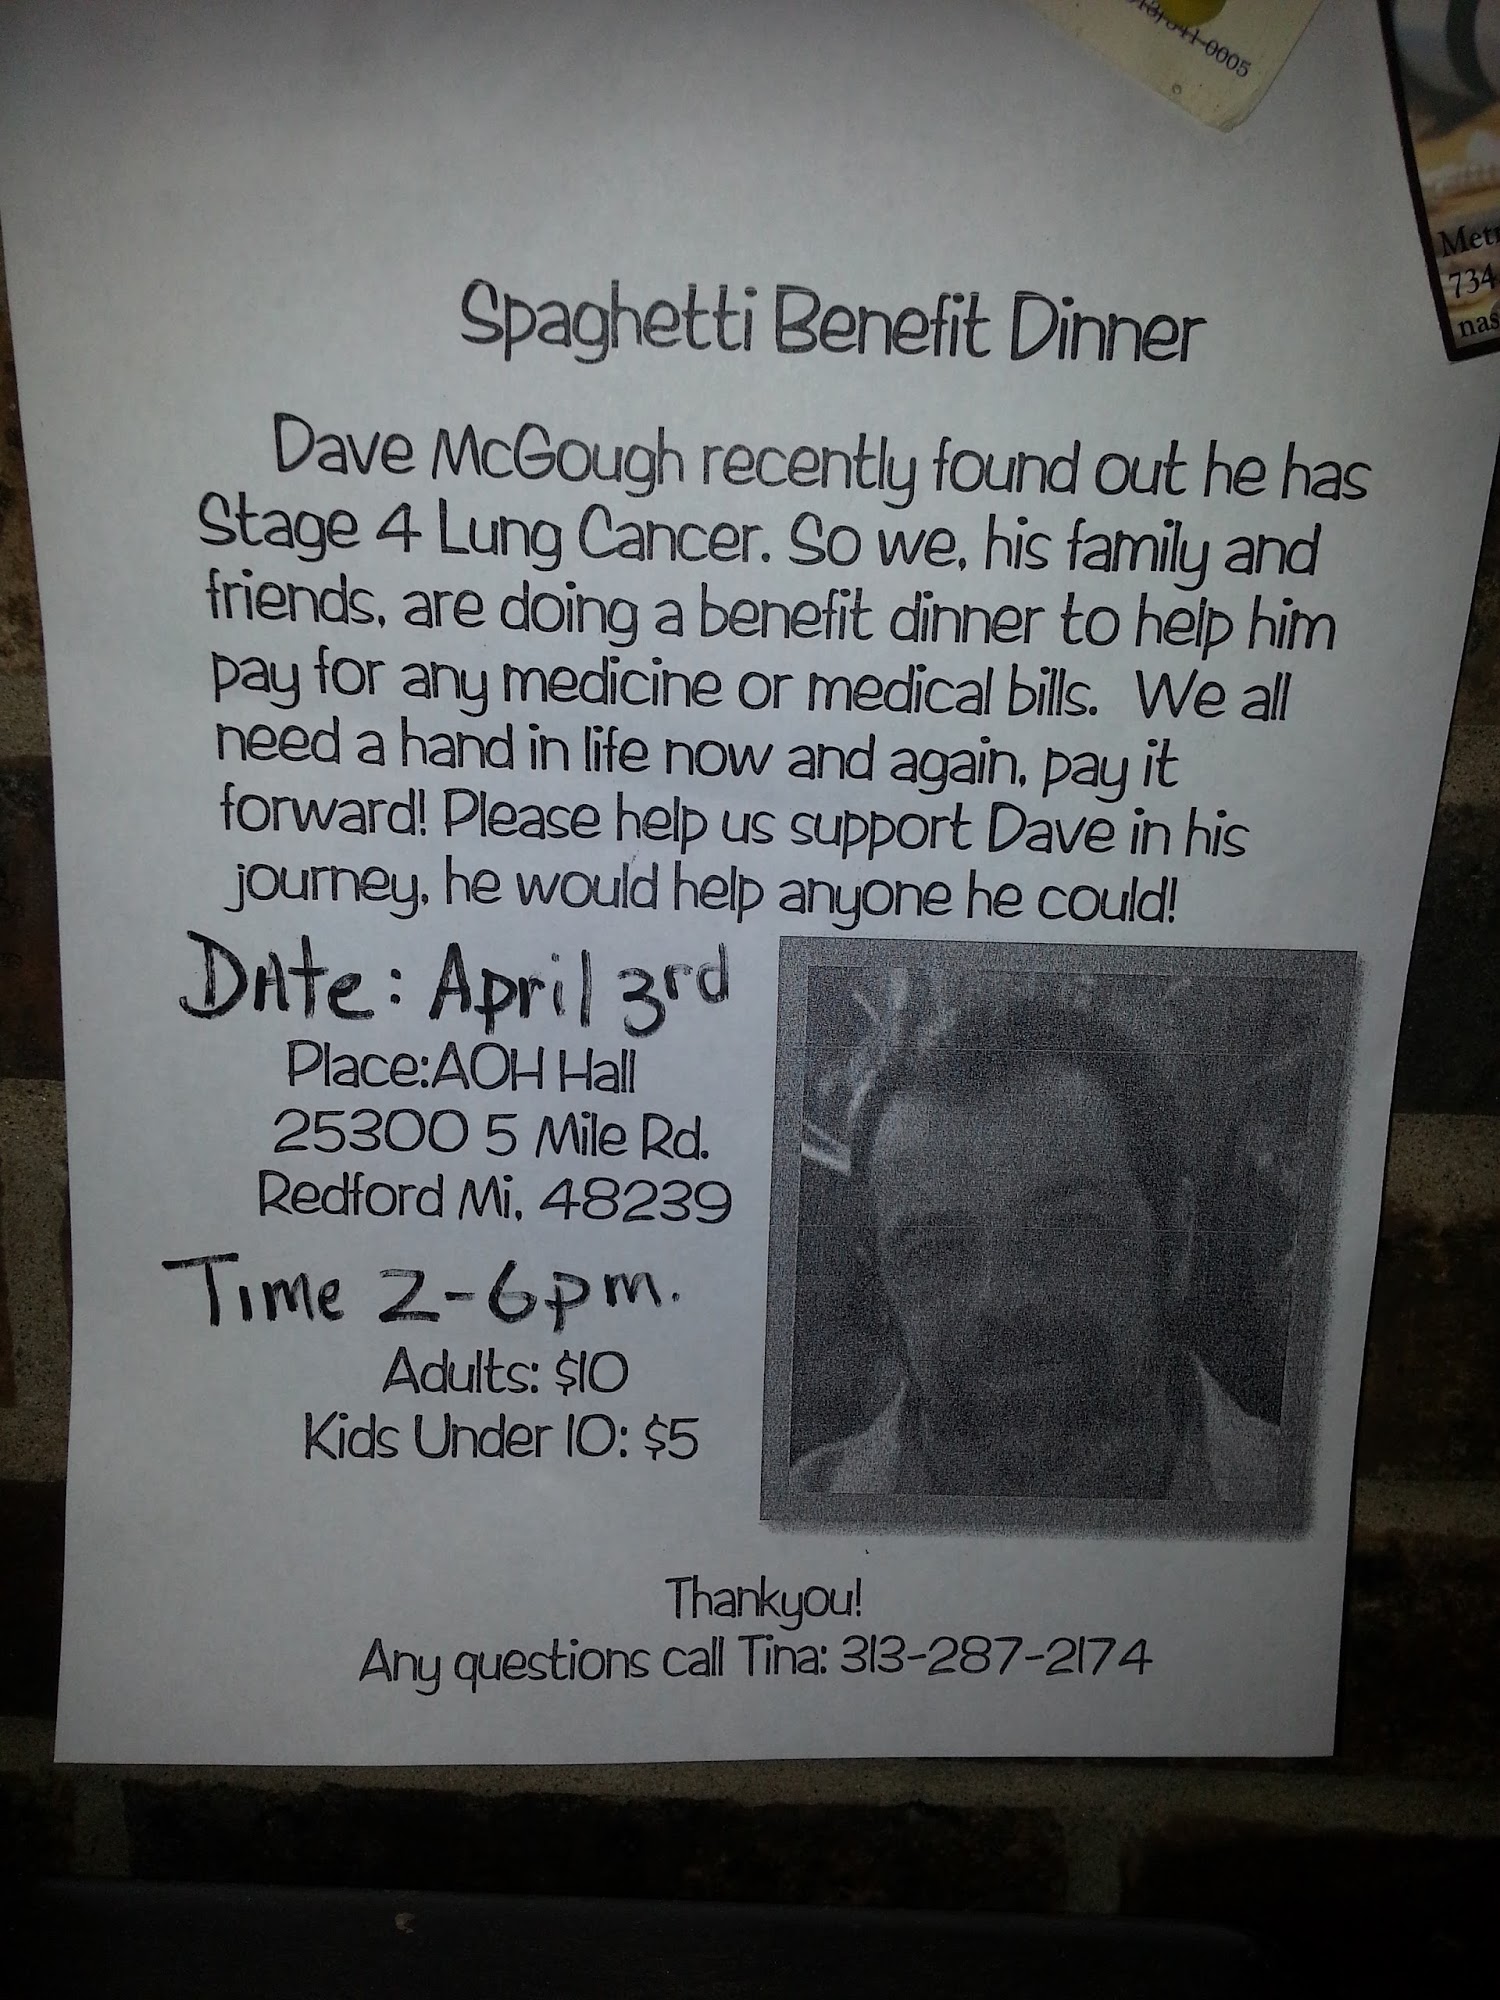 0005
Metr
734
nas
Spaghetti Benefit Dinner
Dave McGough recently found out he has
Stage 4 Lung Cancer. So we, his family and
friends, are doing a benefit dinner to help him
pay for any medicine or medical bills. We all
need a hand in life now and again, pay it
forward! Please help us support Dave in his
journey, he would help anyone he could!
Date: April 3rd
Place:AOH Hall
25300 5 Mile Rd.
Redford Mi, 48239
Time 2-6pm.
Adults: $10
Kids Under 10: $5
Thankyou!
Any questions call Tina: 313-287-2174